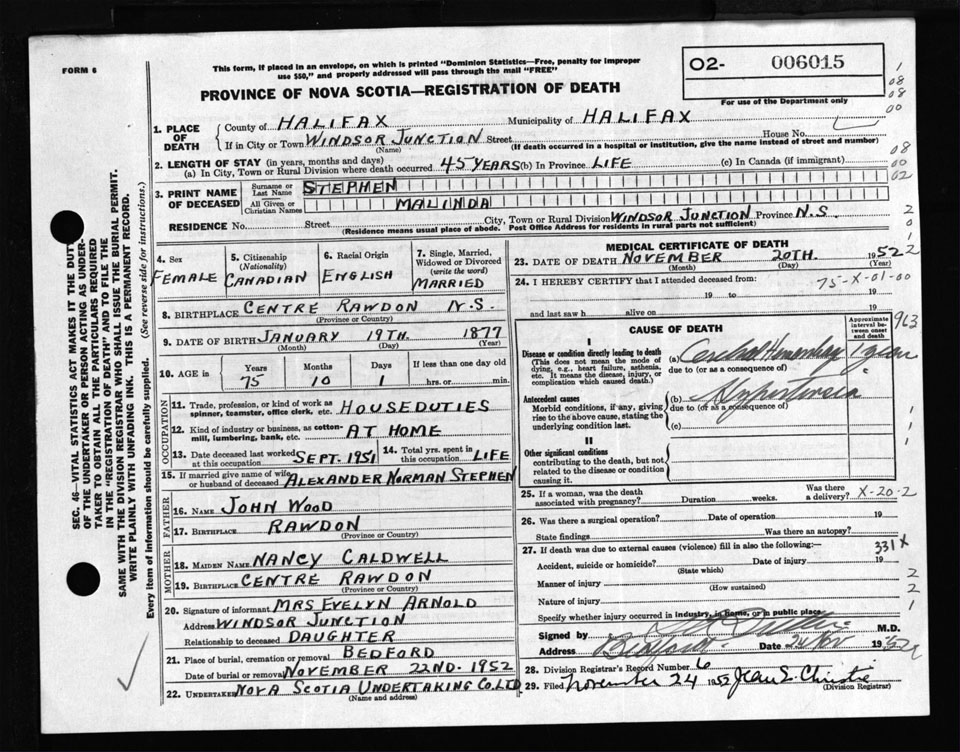 FORM 6
This form, if placed in an envelope, on which is printed "Dominion Statistics—Free, penalty for improper
use $50," and properly addressed will pass through the mail "FREE"
O2- 006015
For use of the Department only
PROVINCE OF NOVA SCOTIA—REGISTRATION OF DEATH
1. PLACE OF DEATH
County of HALIFAX Municipality of HALIFAX
If in City or Town WINDSOR JUNCTION Street House No.
(Name) (If death occurred in a hospital or institution, give the name instead of street and number)
2. LENGTH OF STAY (in years, months and days)
(a) In City, Town or Rural Division where death occurred 45 YEARS (b) In Province LIFE (c) In Canada (if immigrant)
3. PRINT NAME OF DECEASED
Surname or Last Name STEPHEN
All Given or Christian Names MALINDA
RESIDENCE No. Street City, Town or Rural Division WINDSOR JUNCTION Province N.S.
(Residence means usual place of abode. Post Office Address for residents in rural parts not sufficient)
4. Sex FEMALE
5. Citizenship (Nationality) CANADIAN
6. Racial Origin ENGLISH
7. Single, Married, Widowed or Divorced (write the word) MARRIED
8. BIRTHPLACE CENTRE RAWDON N.S.
(Province or Country)
9. DATE OF BIRTH JANUARY 19TH. 1877
(Month) (Day) (Year)
10. AGE in Years Months Days If less than one day old
75 10 1 hrs. or min.
OCCUPATION
11. Trade, profession, or kind of work as spinner, teamster, office clerk, etc. HOUSE DUTIES
12. Kind of industry or business, as cotton-mill, lumbering, bank, etc. AT HOME
13. Date deceased last worked at this occupation SEPT. 1951 14. Total yrs. spent in this occupation LIFE
15. If married give name of wife or husband of deceased ALEXANDER NORMAN STEPHEN
FATHER
16. NAME JOHN WOOD
17. BIRTHPLACE RAWDON
(Province or Country)
MOTHER
18. MAIDEN NAME NANCY CALDWELL
19. BIRTHPLACE CENTRE RAWDON
(Province or Country)
20. Signature of informant MRS EVELYN ARNOLD
Address WINDSOR JUNCTION
Relationship to deceased DAUGHTER
21. Place of burial, cremation or removal BEDFORD
Date of burial or removal NOVEMBER 22ND. 1952
22. UNDERTAKER NOVA SCOTIA UNDERTAKING CO. LTD
(Name and address)
MEDICAL CERTIFICATE OF DEATH
23. DATE OF DEATH NOVEMBER 20TH. 1952
(Month) (Day) (Year)
24. I HEREBY CERTIFY that I attended deceased from:
75-X-01-00
19 to 19
and last saw h alive on 19
CAUSE OF DEATH
Approximate interval between onset and death
963
I
Disease or condition directly leading to death
(This does not mean the mode of dying, e.g., heart failure, asthenia, etc. It means the disease, injury, or complication which caused death.)
(a) Cerebral Hemorrhage 1 year
due to (or as a consequence of)
Antecedent causes
Morbid conditions, if any, giving rise to the above cause, stating the underlying condition last.
(b) Hypertension
due to (or as a consequence of)
(c)
II
Other significant conditions
contributing to the death, but not related to the disease or condition causing it.
25. If a woman, was the death associated with pregnancy? Duration weeks. Was there a delivery? X-20-2
26. Was there a surgical operation? Date of operation 19
State findings Was there an autopsy?
27. If death was due to external causes (violence) fill in also the following:— 331X
Accident, suicide or homicide? Date of injury 19
(State which)
Manner of injury
(How sustained)
Nature of injury
Specify whether injury occurred in industry, in home, or in public place
Signed by M.D.
Address Bedford Date 24 Nov 1952
28. Division Registrar's Record Number 6
29. Filed November 24 1952 Jean S. Christie
(Division Registrar)
SEC. 46—VITAL STATISTICS ACT MAKES IT THE DUTY
OF THE UNDERTAKER OR PERSON ACTING AS UNDER-
TAKER TO OBTAIN ALL THE PARTICULARS REQUIRED
IN THE "REGISTRATION OF DEATH" AND TO FILE THE
SAME WITH THE DIVISION REGISTRAR WHO SHALL ISSUE THE BURIAL PERMIT.
WRITE PLAINLY WITH UNFADING INK. THIS IS A PERMANENT RECORD.
Every item of information should be carefully supplied. (See reverse side for instructions.)
1
08
08
00
08
00
02
2
0
1
2
1
1
1
2
2
1